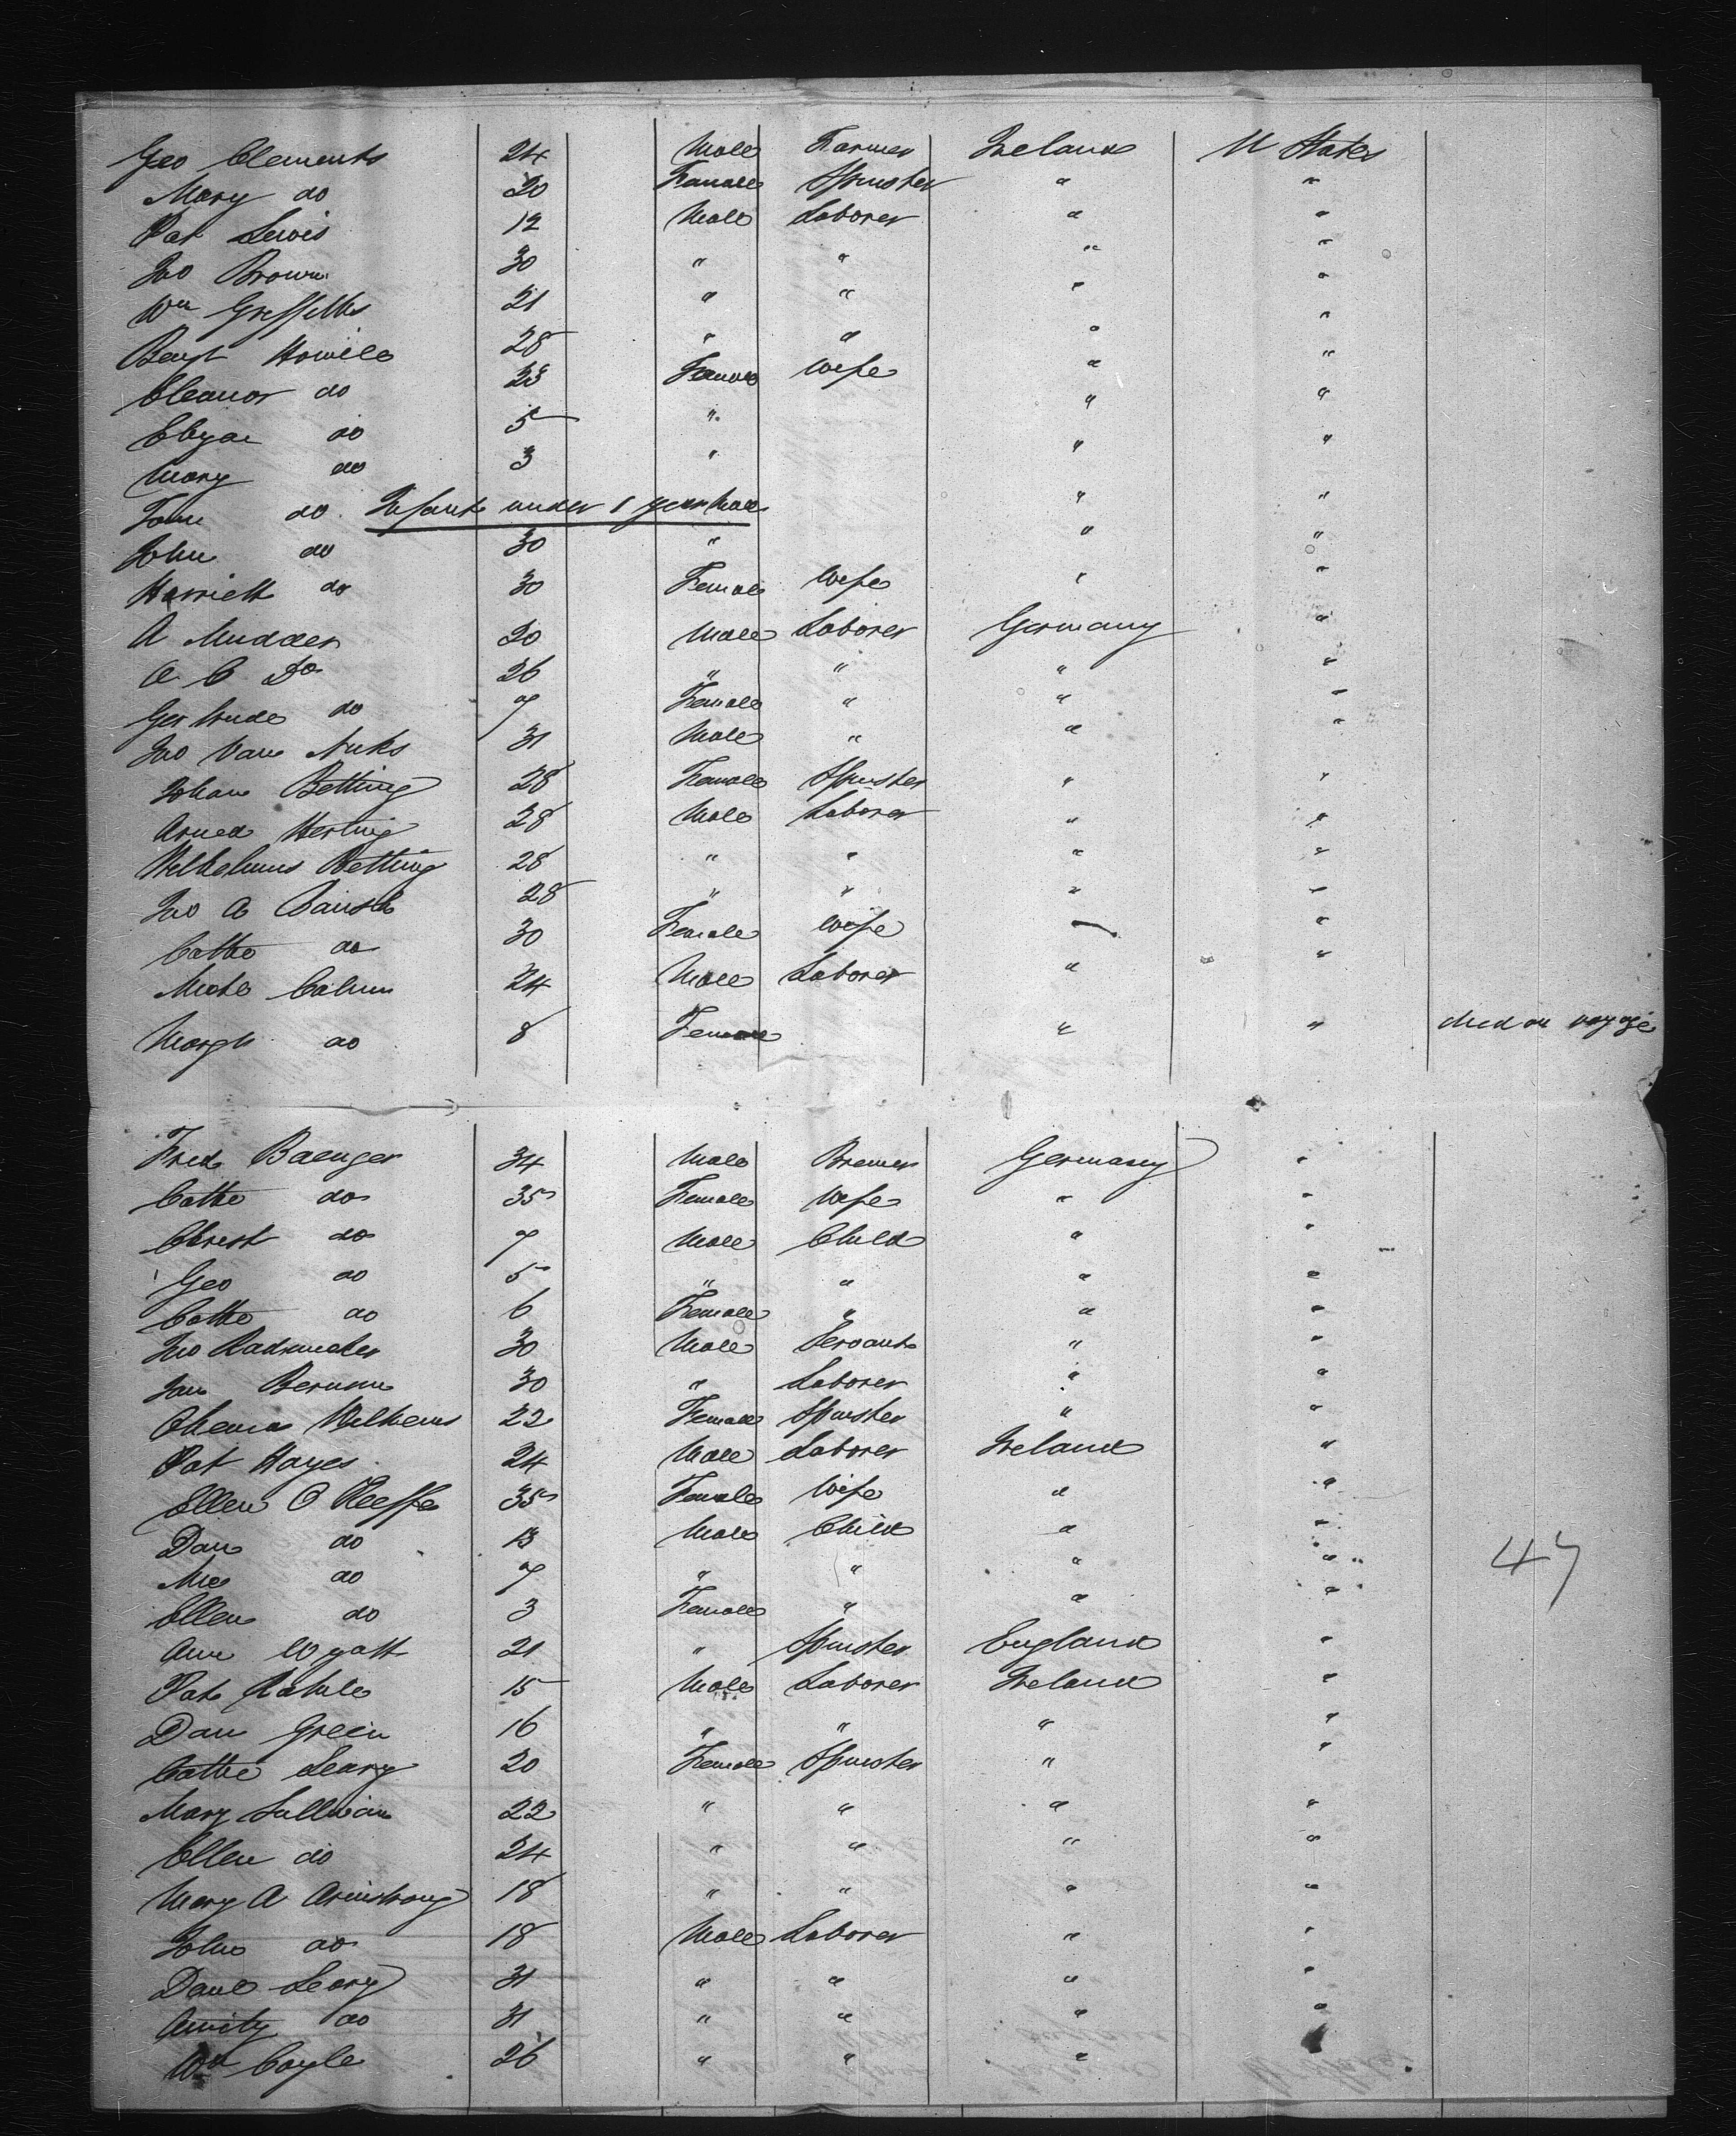 Geo Clements 24 Male Farmer Ireland U States
Mary do 20 Female Spinster " "
Pat Lewis 12 Male Laborer " "
Jno Brown 30 " " " "
Wm Griffiths 21 " " " "
Benj Howells 28 " " " "
Eleanor do 23 Female Wife " "
Eliza do 5 " " "
Mary do 3 " " "
do Infant under 1 year Male " "
John do 30 " " "
Harriett do 30 Female Wife " "
A Mudder 20 Male Laborer Germany "
A C Do 26 " " " "
Gertrude do 7 Female " " "
Jno Van 31 Male " " "
Johan Betting 28 Female Spinster " "
Herting 28 Male Laborer " "
Wilhelmus Betting 28 " " " "
Jno A 28 " " " "
Cathe do 30 Female Wife " "
Michl 24 Male Laborer " "
Margh do 8 Female " " died on voyage
Fred Baenger 34 Male Brewer Germany "
Cathe do 35 Female Wife " "
Christ do 7 Male Child " "
Geo do 5 " " " "
Cathe do 6 Female " " "
Jno Rademacher 30 Male Servant " "
Jan 30 " Laborer " "
Wilhems 22 Female Spinster " "
Pat Hayes 24 Male Laborer Ireland "
Ellen O Keeffe 35 Female Wife " "
Dan do 13 Male Child " "
do 7 " " " "
Ellen do 3 Female " " "
Ann Wyatt 21 " Spinster England "
Pat 15 Male Laborer Ireland "
Dan Green 16 " " " "
Cathe Leary 20 Female Spinster " "
Mary Sullivan 22 " " " "
Ellen do 24 " " " "
Mary A Armstrong 18 " " " "
John do 18 Male Laborer " "
Danl Leary 31 " " " "
do 31 " " " "
Wm Coyle 26 " " "
47